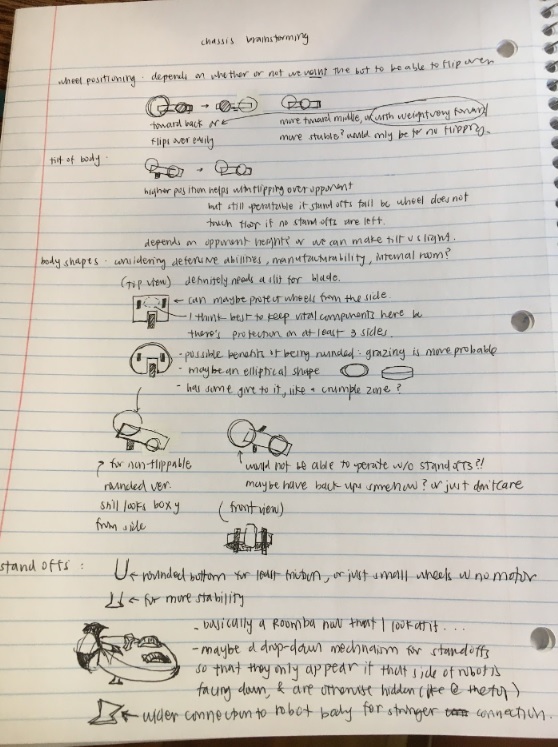 chassis brainstorming
wheel positioning - depends on whether or not we want the bot to be able to flip over
toward back
more toward middle, or with weight very forward
flips over easily
more stable? would only be for no flipping.
tilt of body -
higher position helps with flipping over opponent
but still operatable if stand offs fail bc wheel does not
touch floor if no stand offs are left.
depends on opponent heights or we can make tilt v slight.
body shapes - considering defensive abilities, manufacturability, internal room?
(top view) definitely needs a slit for blade.
← can maybe protect wheels from the side.
I think best to keep vital components here bc
there's protection on at least 3 sides.
- possible benefits of being rounded: grazing is more probable
- maybe an elliptical shape
- has some give to it, like a crumple zone?
for non-flippable
rounded ver.
still looks boxy
from side
would not be able to operate w/o standoffs?!
maybe have back ups somehow? or just don't care
(front view)
stand offs:
← rounded bottom for least friction, or just small wheels w no motor
← for more stability
- basically a Roomba now that I look at it...
- maybe a drop-down mechanism for standoffs
so that they only appear if that side of robot is
facing down, & are otherwise hidden (like @ the top)
← wider connection to robot body for stronger connection.